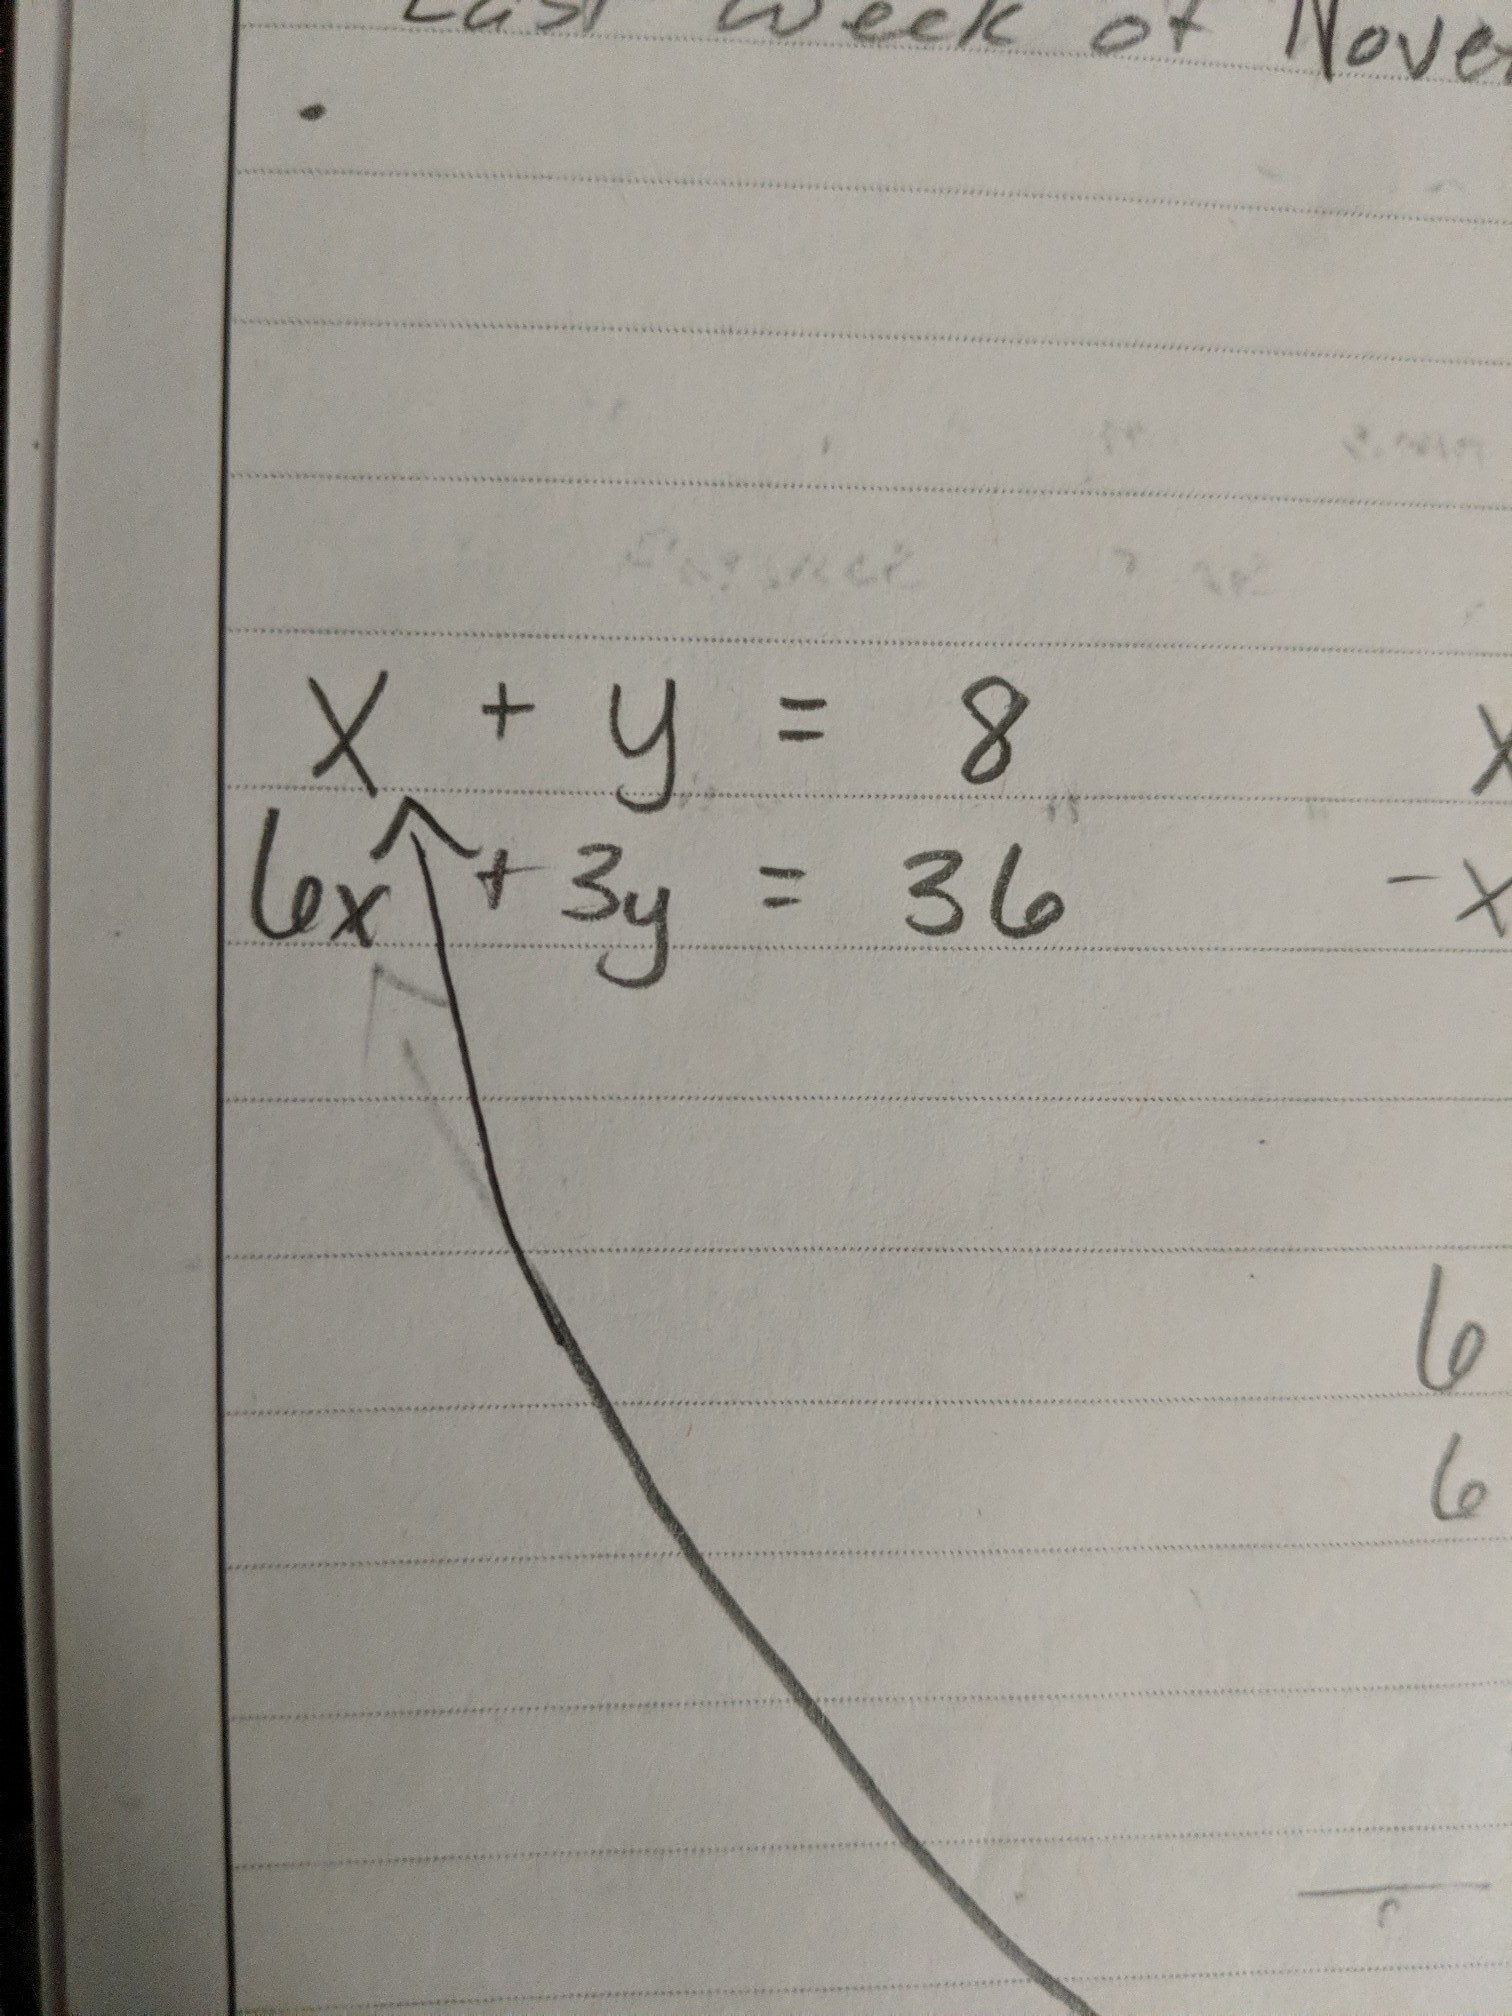 Last Week of Nove
x + y = 8
x
6x + 3y = 36
-x
6
6